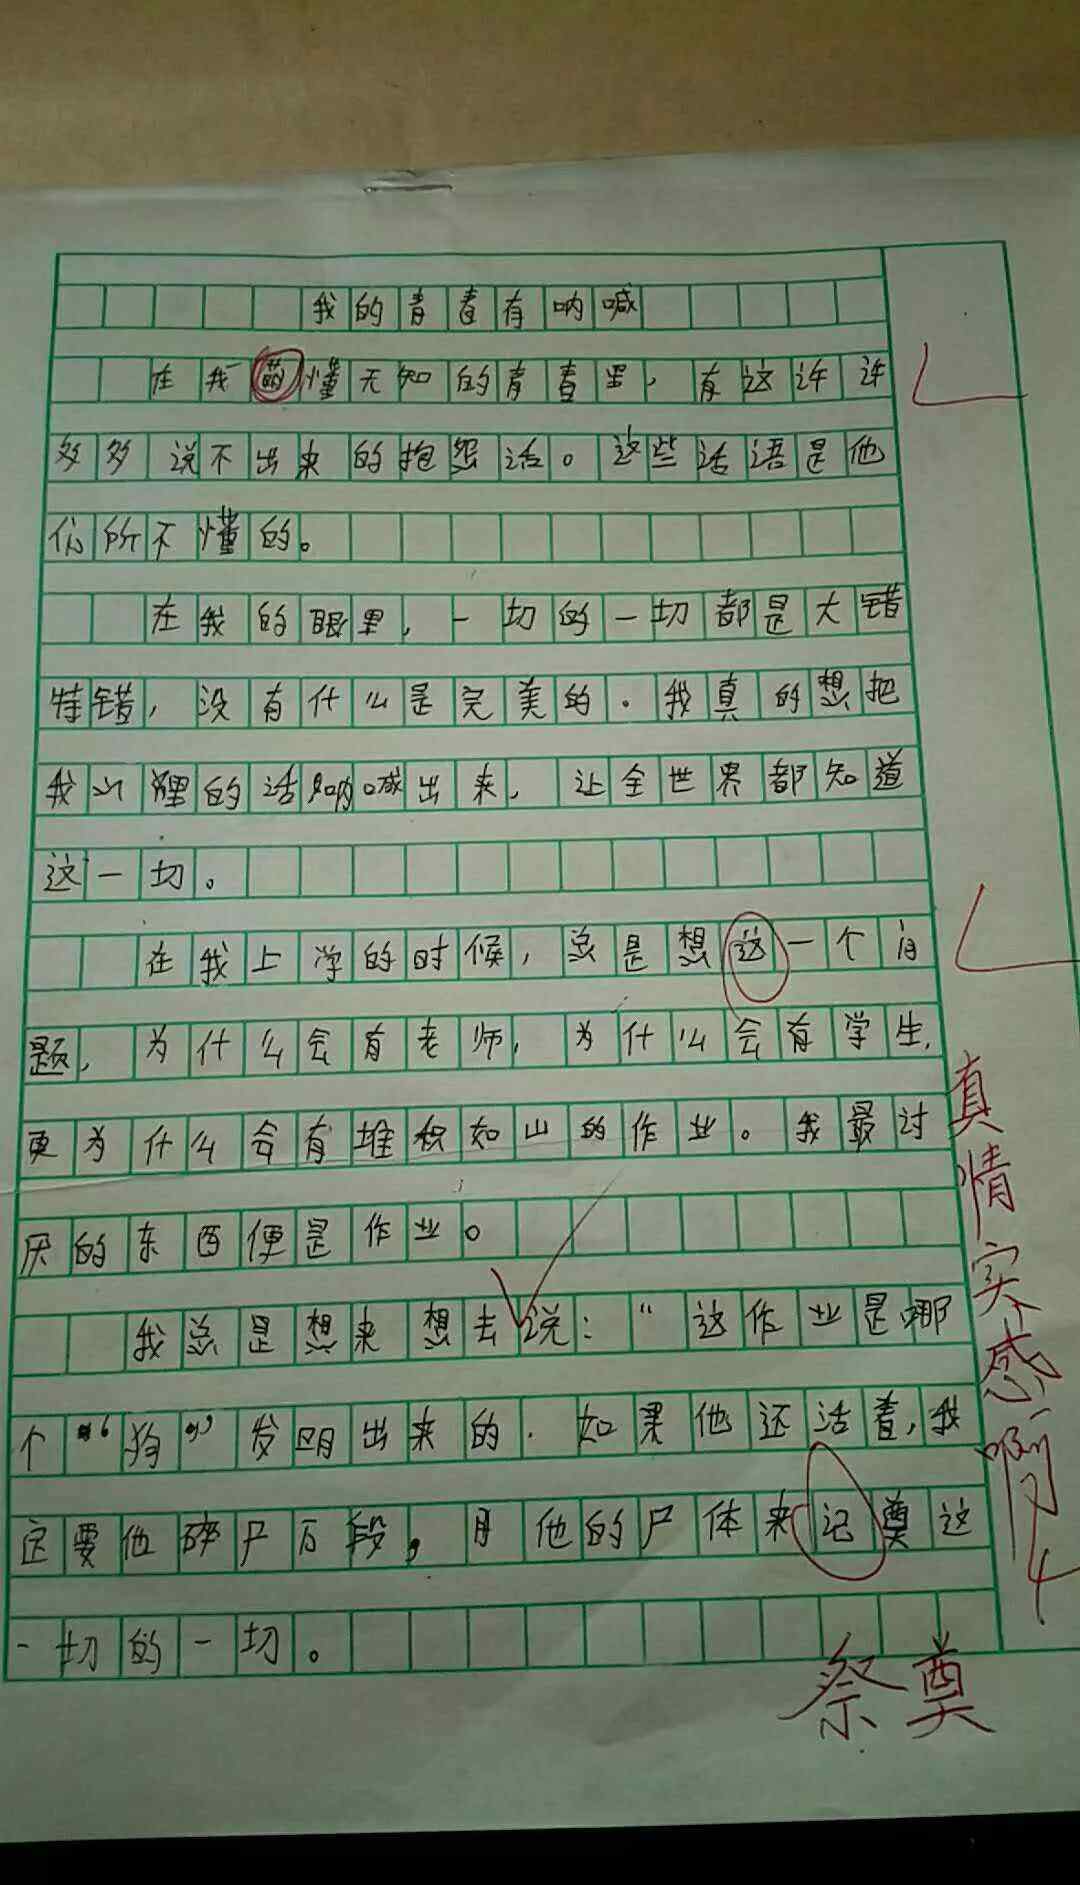 我的青春有呐喊
在我萌懂无知的青春里，有这许许
多多说不出来的抱怨话。这些话语是他
们所不懂的。
在我的眼里，一切的一切都是大错
特错，没有什么是完美的．我真的想把
我心里的话呐喊出来，让全世界都知道
这一切。
在我上学的时候，总是想这一个问
题，为什么会有老师，为什么会有学生，
更为什么会有堆积如山的作业。我最讨
厌的东西便是作业。
我总是想来想去说：“这作业是哪
个“狗”发明出来的．如果他还活着，我
定要他碎尸万段，用他的尸体来记奠这
一切的一切。
真情实感啊！
祭奠